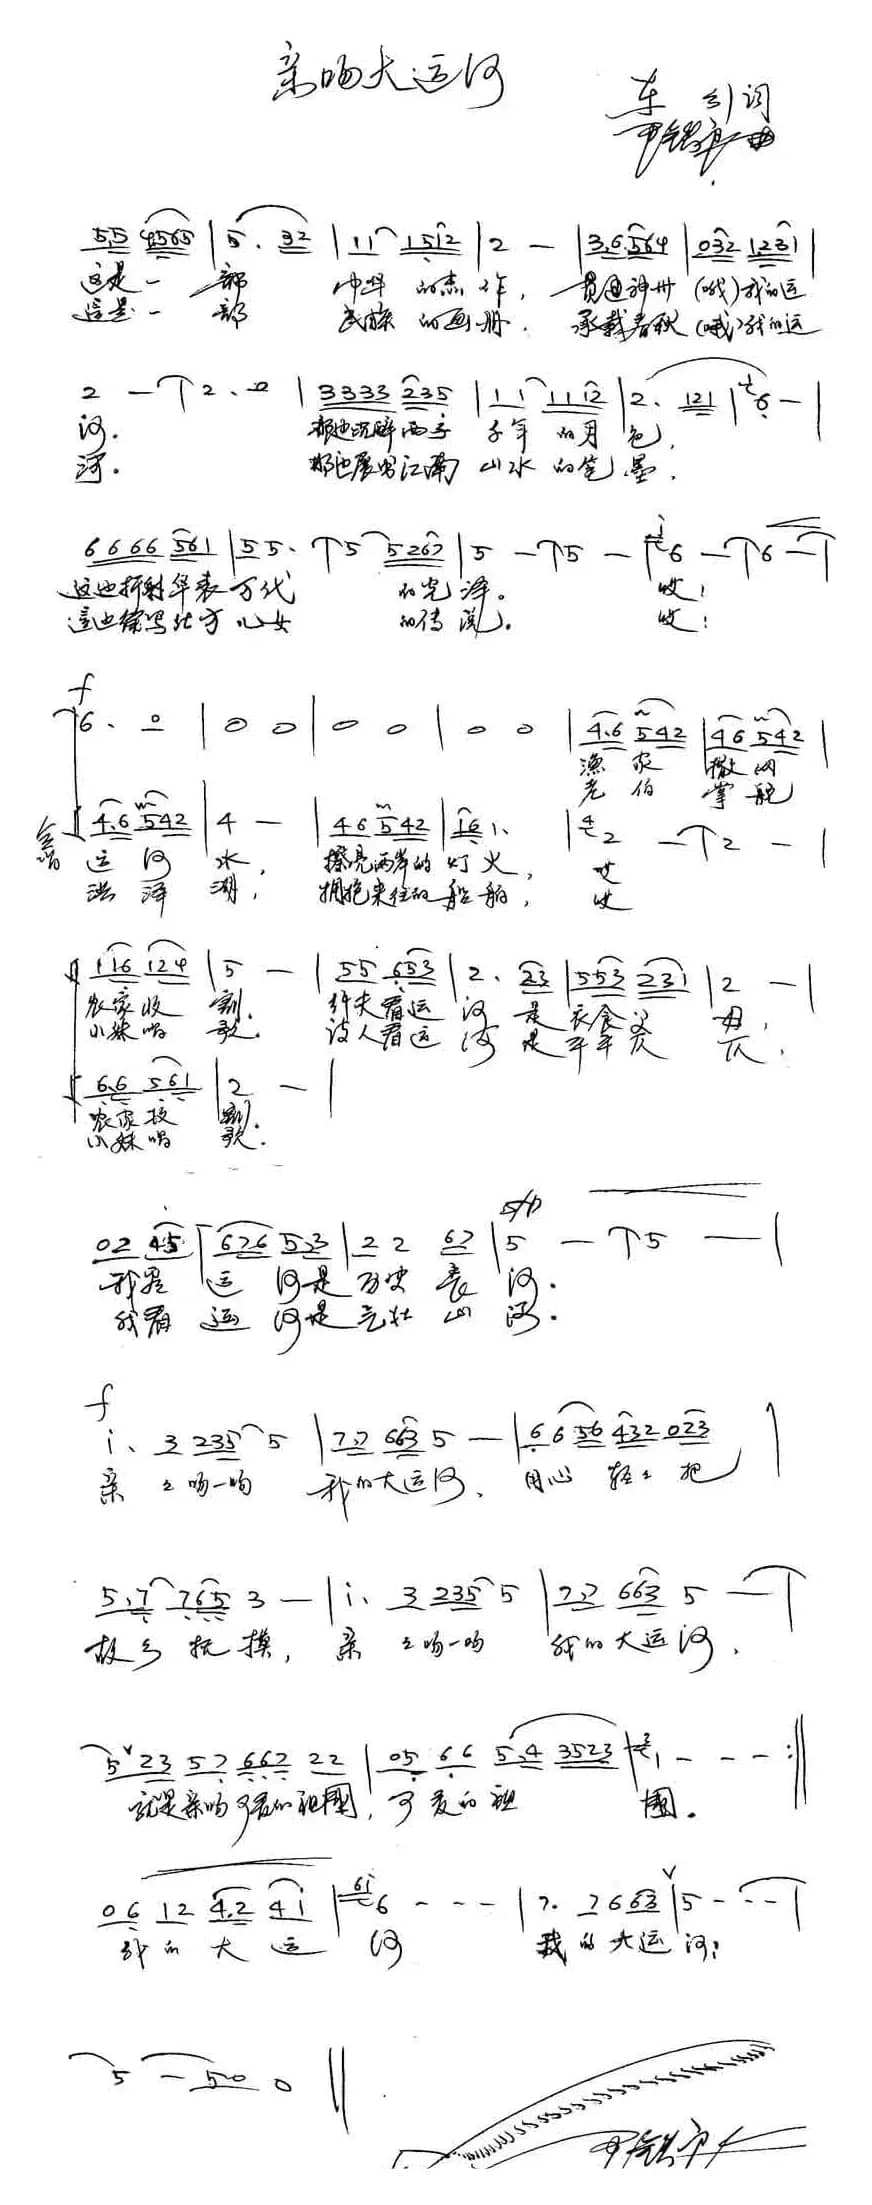 亲吻大运河
车 引 词
尹铁良 曲
5.5 4565 | 5. 32 | 11 1512 | 2 — | 3.6 564 | 032 1231 |
这是一 部 中华 的杰作, 贯通神州 (哦)我的运
这是一 部 民族 的画册. 承载春秋 (哦)我的运
2 — | 2. 0 | 3333 235 | 11 1112 | 2. 121 | 6 — |
河. 那边沉醉西子 千年 的月 色,
河. 那边展写江南 山水 的笔 墨,
6666 561 | 55. | 5 5267 | 5 — | 5 — | 6 — | 6 — |
这边折射华表万代 的光 泽。 哎!
这边续写北方儿女 的传 说. 哎!
f
6. 0 | 0 0 | 0 0 | 0 0 | 4.6 542 | 46 542 |
渔 家 撒 网
老 伯 掌 舵
合唱
4.6 542 | 4 — | 46 542 | 16 1. | 2 — | 2 — |
运 河 水, 擦亮两岸的 灯 火, 哎
洪 泽 湖, 拥抱来往的 船 舶, 哎
116 124 | 5 — | 55 653 | 2. 23 | 553 231 | 2 — |
农家收 割. 纤夫看运 河 是 衣食父 母,
小妹唱 歌. 诗人看运 河 是 平平仄 仄,
6.6 561 | 2 — |
农家收 割.
小妹唱 歌.
sfp
02 45 | 626 5.3 | 22 67 | 5 — | 5 — |
我看 运 河是 历史 长 河.
我看 运 河是 壮 山 河.
f
i. 3 235 5 | 7.7 663 5 — | 6 6 56 432 023 |
亲 吻一吻 我的大运河, 用心 轻 把
5.7 765 3 — | i. 3 235 5 | 7.7 663 5 — |
故乡 抚 摸, 亲 吻一吻 我的 大运河,
5 23 57 667 22 | 05 66 5.4 3523 | 1 - - - :||
就是亲吻可爱的祖国, 可 爱的 祖 国.
06 12 4.2 4i | 6 - - - | 7. 7 663 | 5 - - - |
我的 大 运 河 我 的大运 河!
5 — 50 0 ||
尹铁良